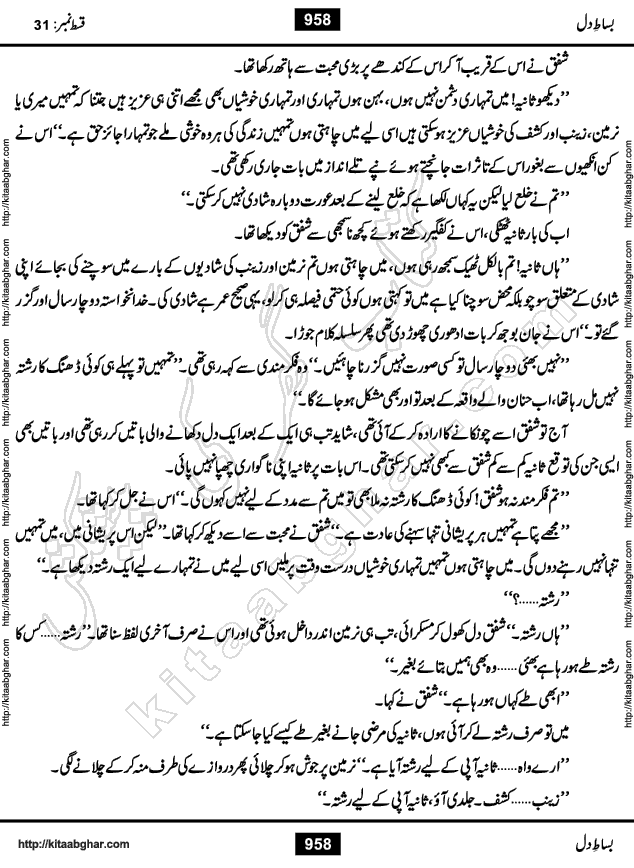 بساطِ دل 958 قسط نمبر: 31
شفق نے اس کے قریب آ کر اس کے کندھے پر بڑی محبت سے ہاتھ رکھا تھا۔
’’دیکھو ثانیہ! میں تمہاری دشمن نہیں ہوں، بہن ہوں تمہاری اور تمہاری خوشیاں بھی مجھے اتنی ہی عزیز ہیں جتنا کہ تمہیں میری یا
نرمین، زینب اور کشف کی خوشیاں عزیز ہو سکتی ہیں اسی لیے میں چاہتی ہوں تمہیں زندگی کی ہر وہ خوشی ملے جو تمہارا جائز حق ہے۔‘‘ اس نے
کن انکھیوں سے بغور اس کے تاثرات جانچتے ہوئے نپے تلے انداز میں بات جاری رکھی تھی۔
’’تم نے خلع لیا لیکن یہ کہاں لکھا ہے کہ خلع لینے کے بعد عورت دوبارہ شادی نہیں کر سکتی۔‘‘
اب کی بار ثانیہ ٹھٹکی، اس نے کفگیر رکھتے ہوئے کچھ نا سمجھی سے شفق کو دیکھا تھا۔
’’ہاں ثانیہ! تم بالکل ٹھیک سمجھ رہی ہوں، میں چاہتی ہوں تم نرمین اور زینب کی شادیوں کے بارے میں سوچنے کی بجائے اپنی
شادی کے متعلق سوچو بلکہ محض سوچنا کیا ہے میں تو کہتی ہوں کوئی حتمی فیصلہ ہی کر لو، یہی صحیح عمر ہے شادی کی۔ خدانخواستہ دو چار سال اور گزر
گئے تو۔‘‘ اس نے جان بوجھ کر بات ادھوری چھوڑ دی تھی پھر سلسلہ کلام جوڑا۔
’’نہیں بھئی دو چار سال تو کسی صورت نہیں گزرنا چاہئیں۔‘‘ وہ فکر مندی سے کہہ رہی تھی۔ ’’تمہیں تو پہلے ہی کوئی ڈھنگ کا رشتہ
نہیں مل رہا تھا، اب حنان والے واقعہ کے بعد تو اور بھی مشکل ہو جائے گا۔‘‘
آج تو شفق اسے چونکانے کا ارادہ کر کے آئی تھی، شاید تب ہی ایک کے بعد ایک دل دکھانے والی باتیں کر رہی تھی اور باتیں بھی
ایسی جن کی توقع ثانیہ کم سے کم شفق سے بھی نہیں کر سکتی تھی۔ اس بات پر ثانیہ اپنی نا گواری چھپا نہیں پائی۔
’’تم فکر مند نہ ہو شفق! کوئی ڈھنگ کا رشتہ نہ ملا بھی تو میں تم سے مدد کے لیے نہیں کہوں گی۔‘‘ اس نے جل کر کہا تھا۔
’’مجھے پتا ہے تمہیں ہر پریشانی تنہا سہنے کی عادت ہے۔‘‘ شفق نے محبت سے اسے دیکھ کر کہا تھا۔ ’’لیکن اس پریشانی میں، میں تمہیں
تنہا نہیں رہنے دوں گی۔ میں چاہتی ہوں تمہیں تمہاری خوشیاں درست وقت پر ملیں اسی لیے میں نے تمہارے لیے ایک رشتہ دیکھا ہے۔‘‘
’’رشتہ......؟‘‘
’’ہاں رشتہ۔‘‘ شفق دل کھول کر مسکرائی، تب ہی نرمین اندر داخل ہوئی تھی اور اس نے صرف آخری لفظ سنا تھا۔ ’’رشتہ...... کس کا
رشتہ طے ہو رہا ہے بھئی...... وہ بھی ہمیں بتائے بغیر۔‘‘
’’ابھی طے کہاں ہو رہا ہے۔‘‘ شفق نے کہا۔
میں تو صرف رشتہ لے کر آئی ہوں، ثانیہ کی مرضی جانے بغیر طے کیسے کیا جا سکتا ہے۔‘‘
’’ارے واہ...... ثانیہ آپی کے لیے رشتہ آیا ہے۔‘‘ نرمین پر جوش ہو کر چلائی پھر دروازے کی طرف منہ کر کے چلانے لگی۔
’’زینب...... کشف۔ جلدی آؤ، ثانیہ آپی کے لیے رشتہ۔‘‘
کتاب گھر کی پیشکش
kitaabghar.com
http://kitaabghar.com
http://kitaabghar.com
http://kitaabghar.com
http://kitaabghar.com
http://kitaabghar.com
http://kitaabghar.com
http://kitaabghar.com
http://kitaabghar.com
http://kitaabghar.com
http://kitaabghar.com
http://kitaabghar.com
http://kitaabghar.com
بساطِ دل 958 http://kitaabghar.com